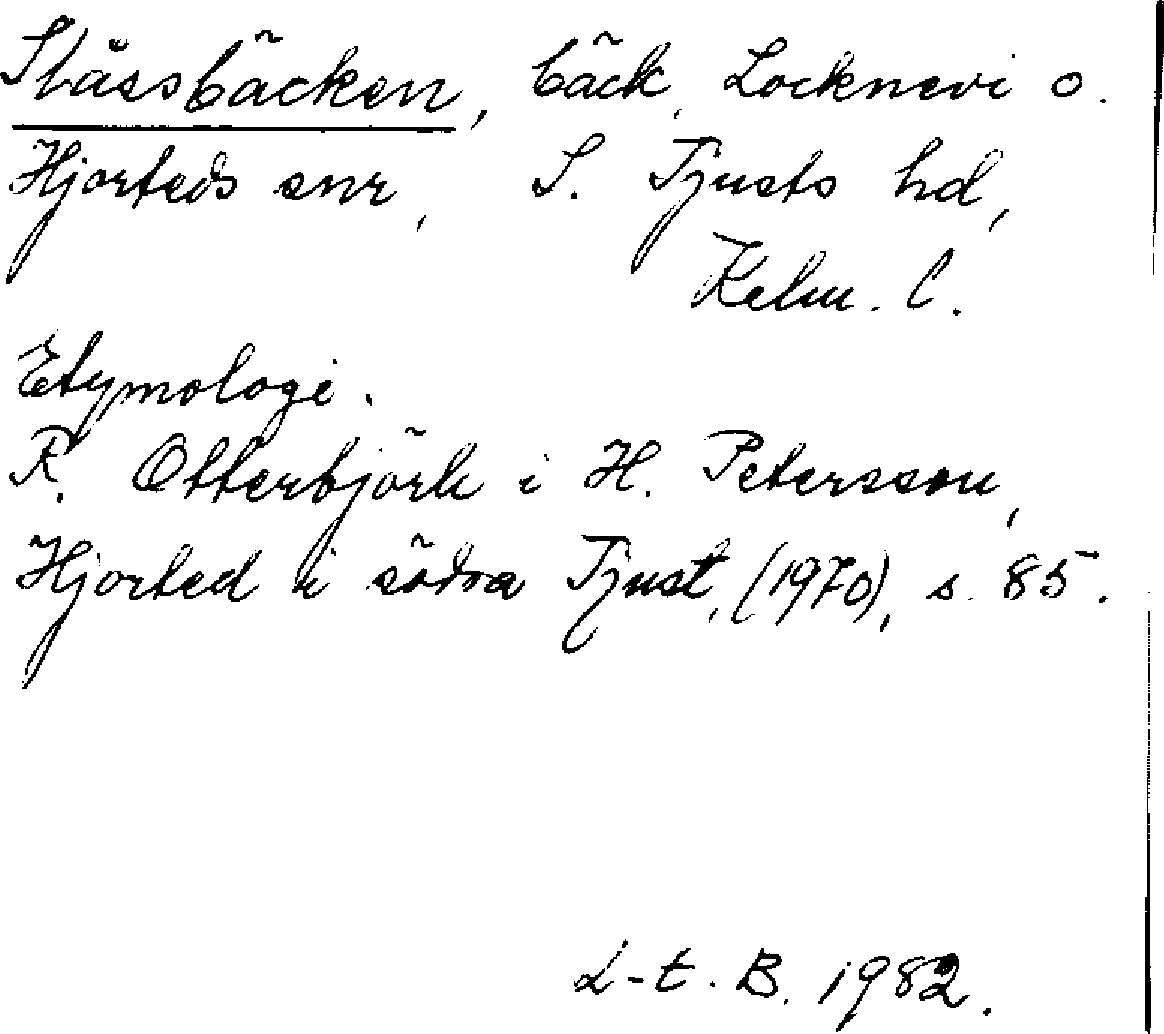 Ståssbäcken, bäck, Locknevi o.
Hjorteds snr, S. Tjusts hd,
Kalm. l.
Etymologi.
R. Otterbjörk i H. Petersson,
Hjorted i södra Tjust, (1970), s. 85.
L-t. B. 1982.